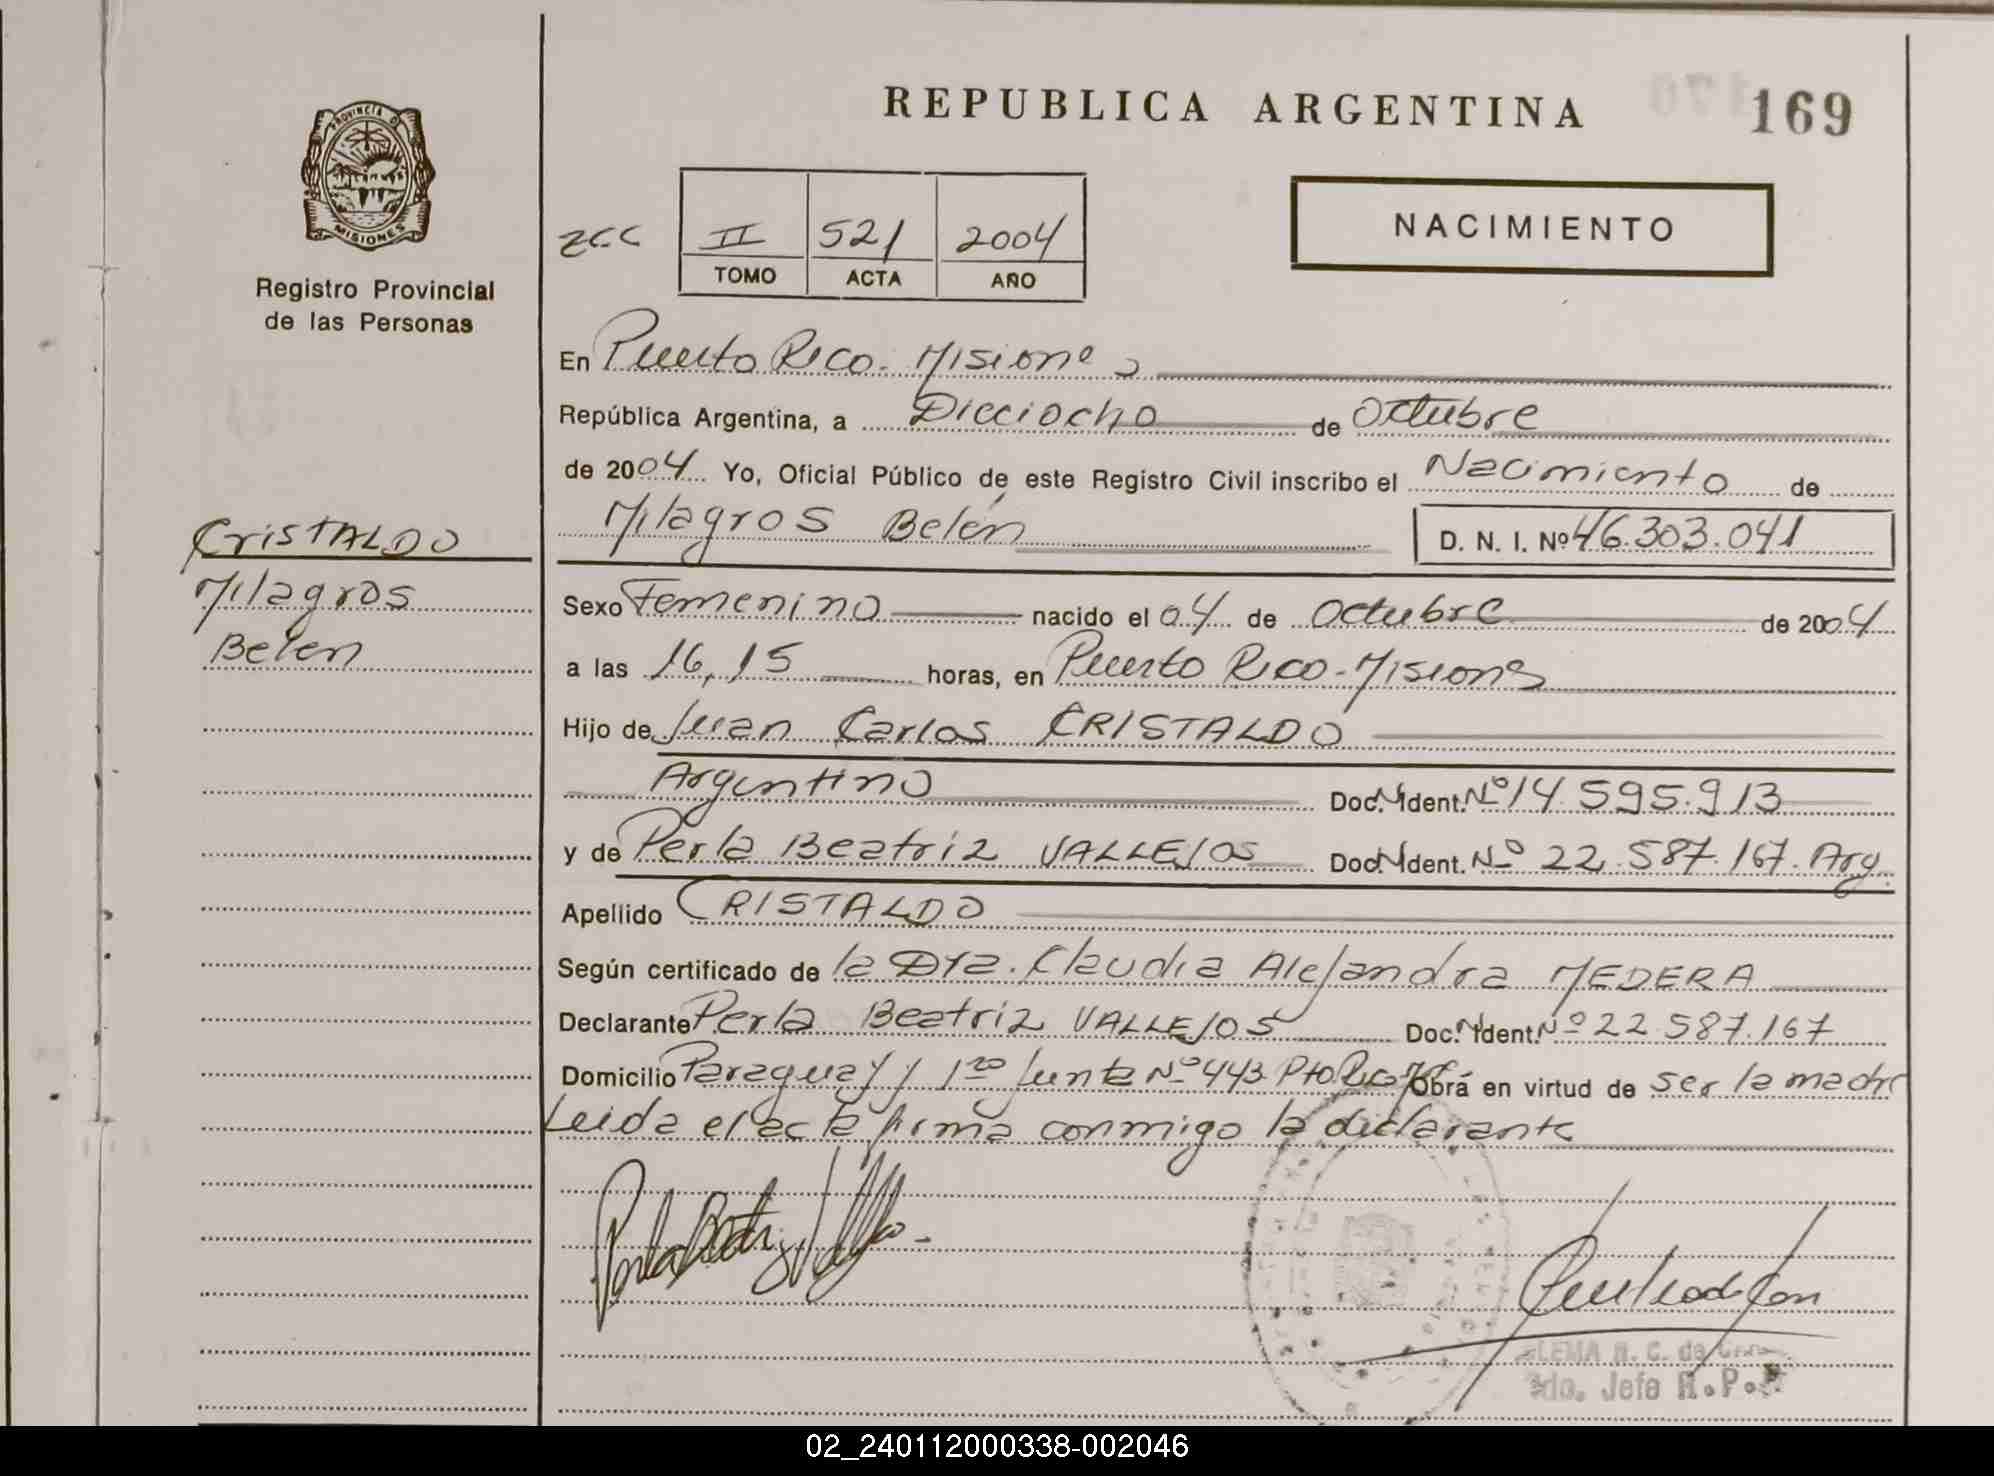 REPUBLICA ARGENTINA
169
PROVINCIA D MISIONES
Registro Provincial
de las Personas
zcc
II 521 2004
TOMO ACTA AÑO
NACIMIENTO
En Puerto Rico. Misiones
República Argentina, a Dieciocho de Octubre
de 2004 Yo, Oficial Público de este Registro Civil inscribo el Nacimiento de
Milagros Belén D. N. I. Nº 46.303.041
CRISTALDO
Milagros
Belen
Sexo Femenino nacido el 04 de Octubre de 2004
a las 16,15 horas, en Puerto Rico-Misiones
Hijo de Juan Carlos CRISTALDO
Argentino Doc. Ident. Nº 14.595.913
y de Perla Beatriz VALLEJOS Doc. Ident. Nº 22.587.167. Arg.
Apellido CRISTALDO
Según certificado de la Dra. Claudia Alejandra MEDERA
Declarante Perla Beatriz VALLEJOS Doc. Ident. Nº 22.587.167
Domicilio Paraguay y 1ra Junta Nº 443 Pto Rico Obrá en virtud de ser la madre
Leida el acta firma conmigo la declarante
Perla Beatriz Vallejos
R. C. de
Jefe R.P.
02_240112000338-002046